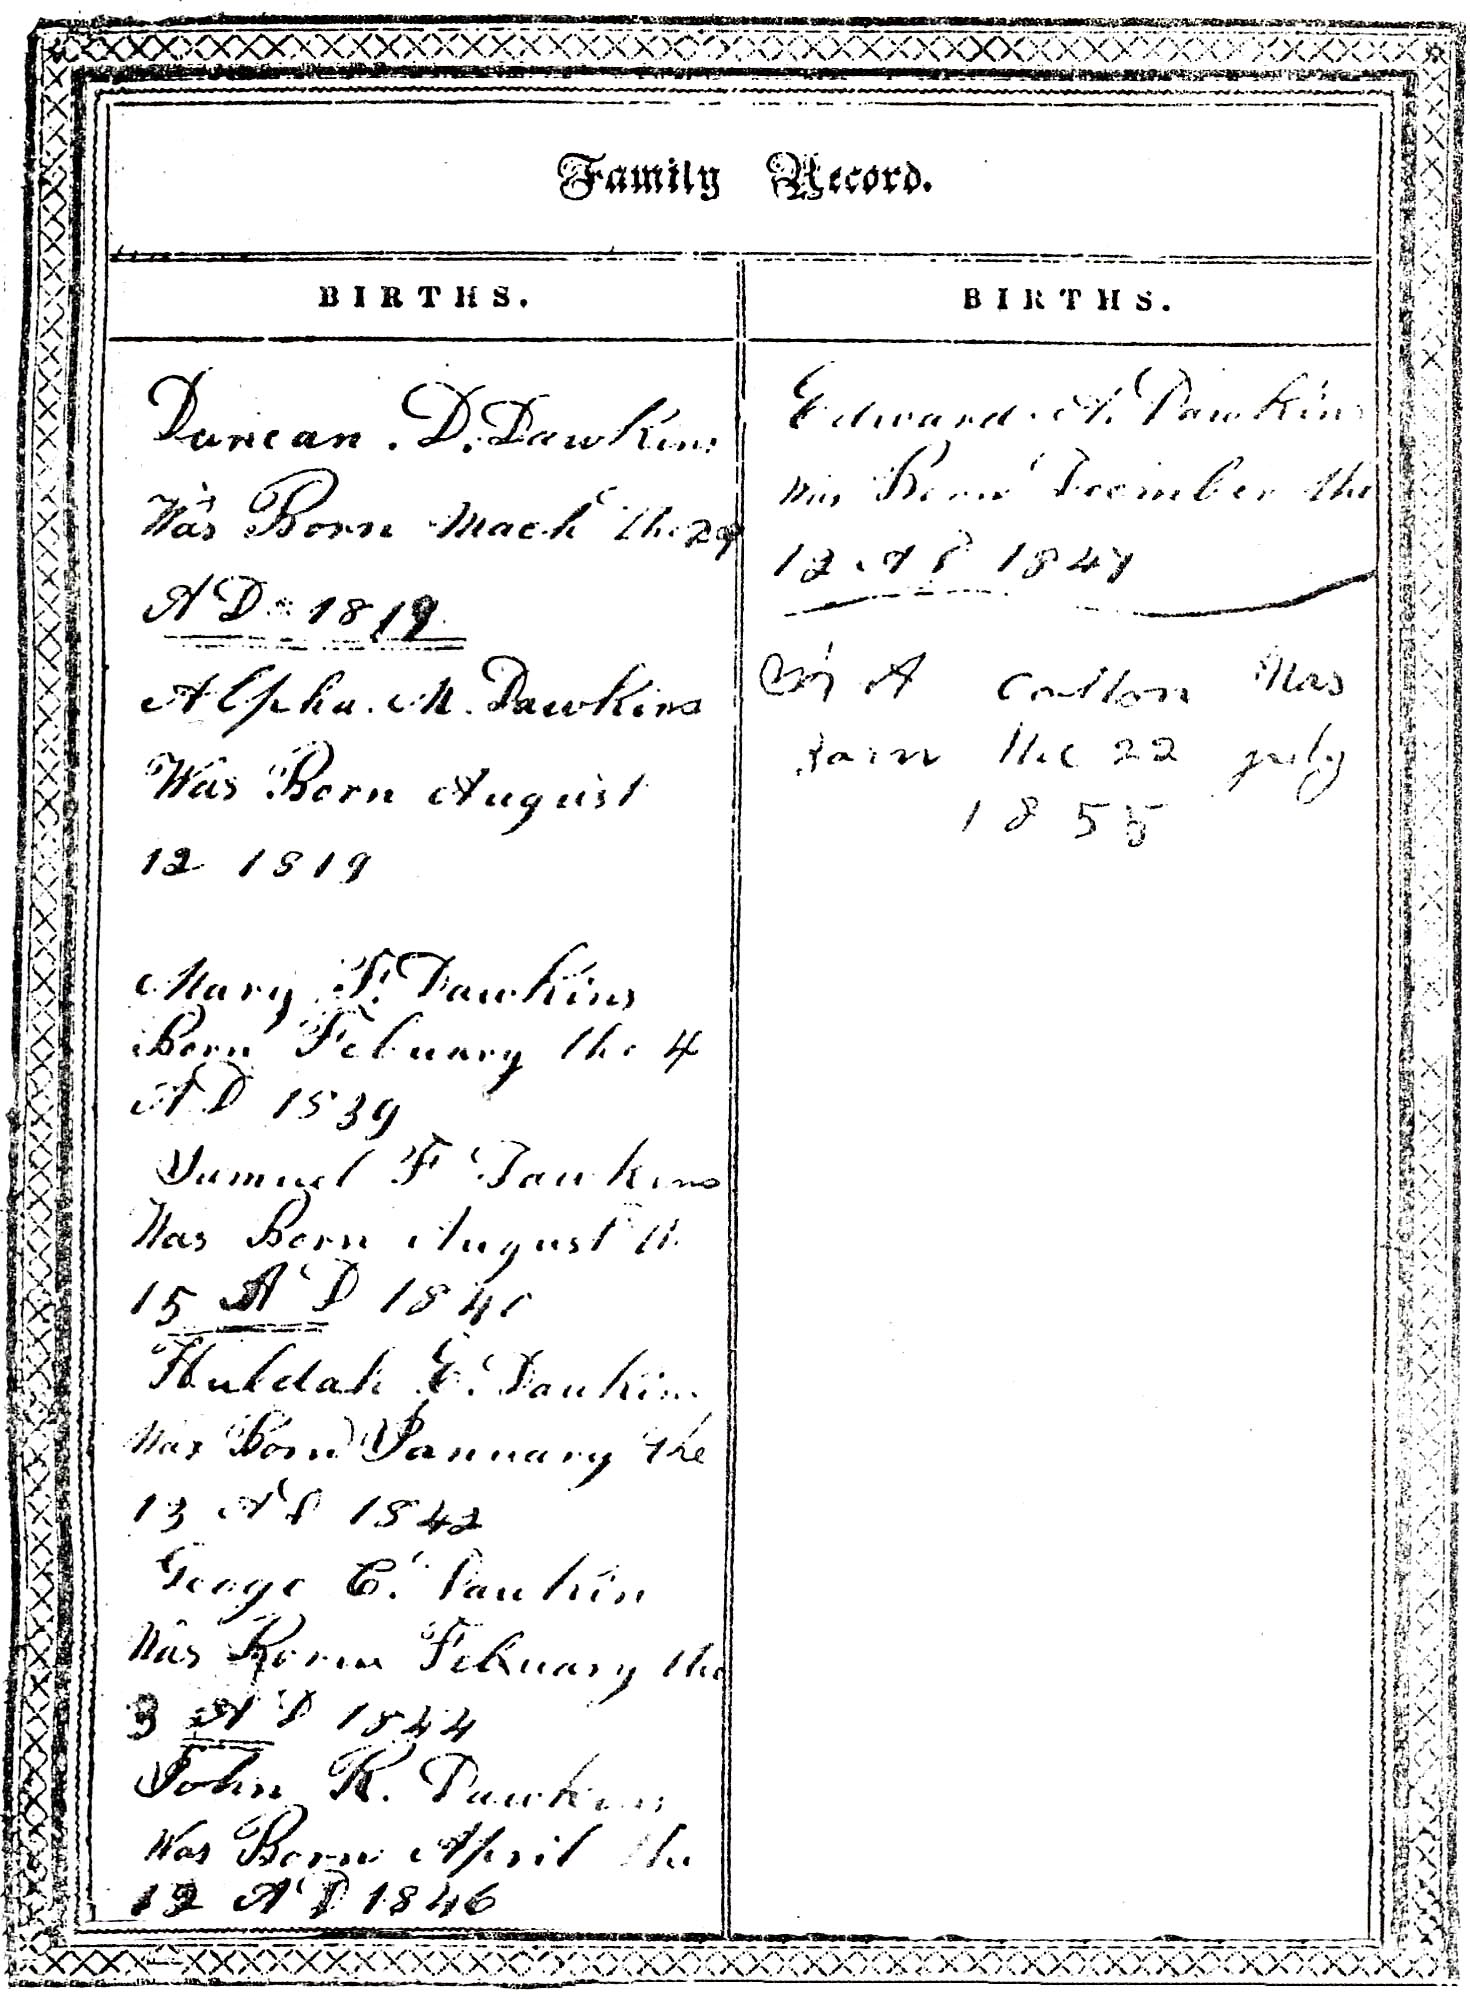 Family Record.
BIRTHS.
Duncan. D. Dawkins
Was Born Mach the 29
AD 1819
Alpha. M. Dawkins
Was Born August
12 1819
Mary F. Dawkins
Born Febuary the 4
AD 1839
Samuel F Dawkins
Was Born August
15 AD 1840
Huldah E. Dawkins
Was Born January the
13 AD 1842
Geoge C. Dawkin
Was Born Febuary the
3 AD 1844
John R. Dawkins
Was Born April the
12 AD 1846
BIRTHS.
Edward. A. Dawkins
Was Born December the
12 AD 1847
A Was
the 22 july
1855